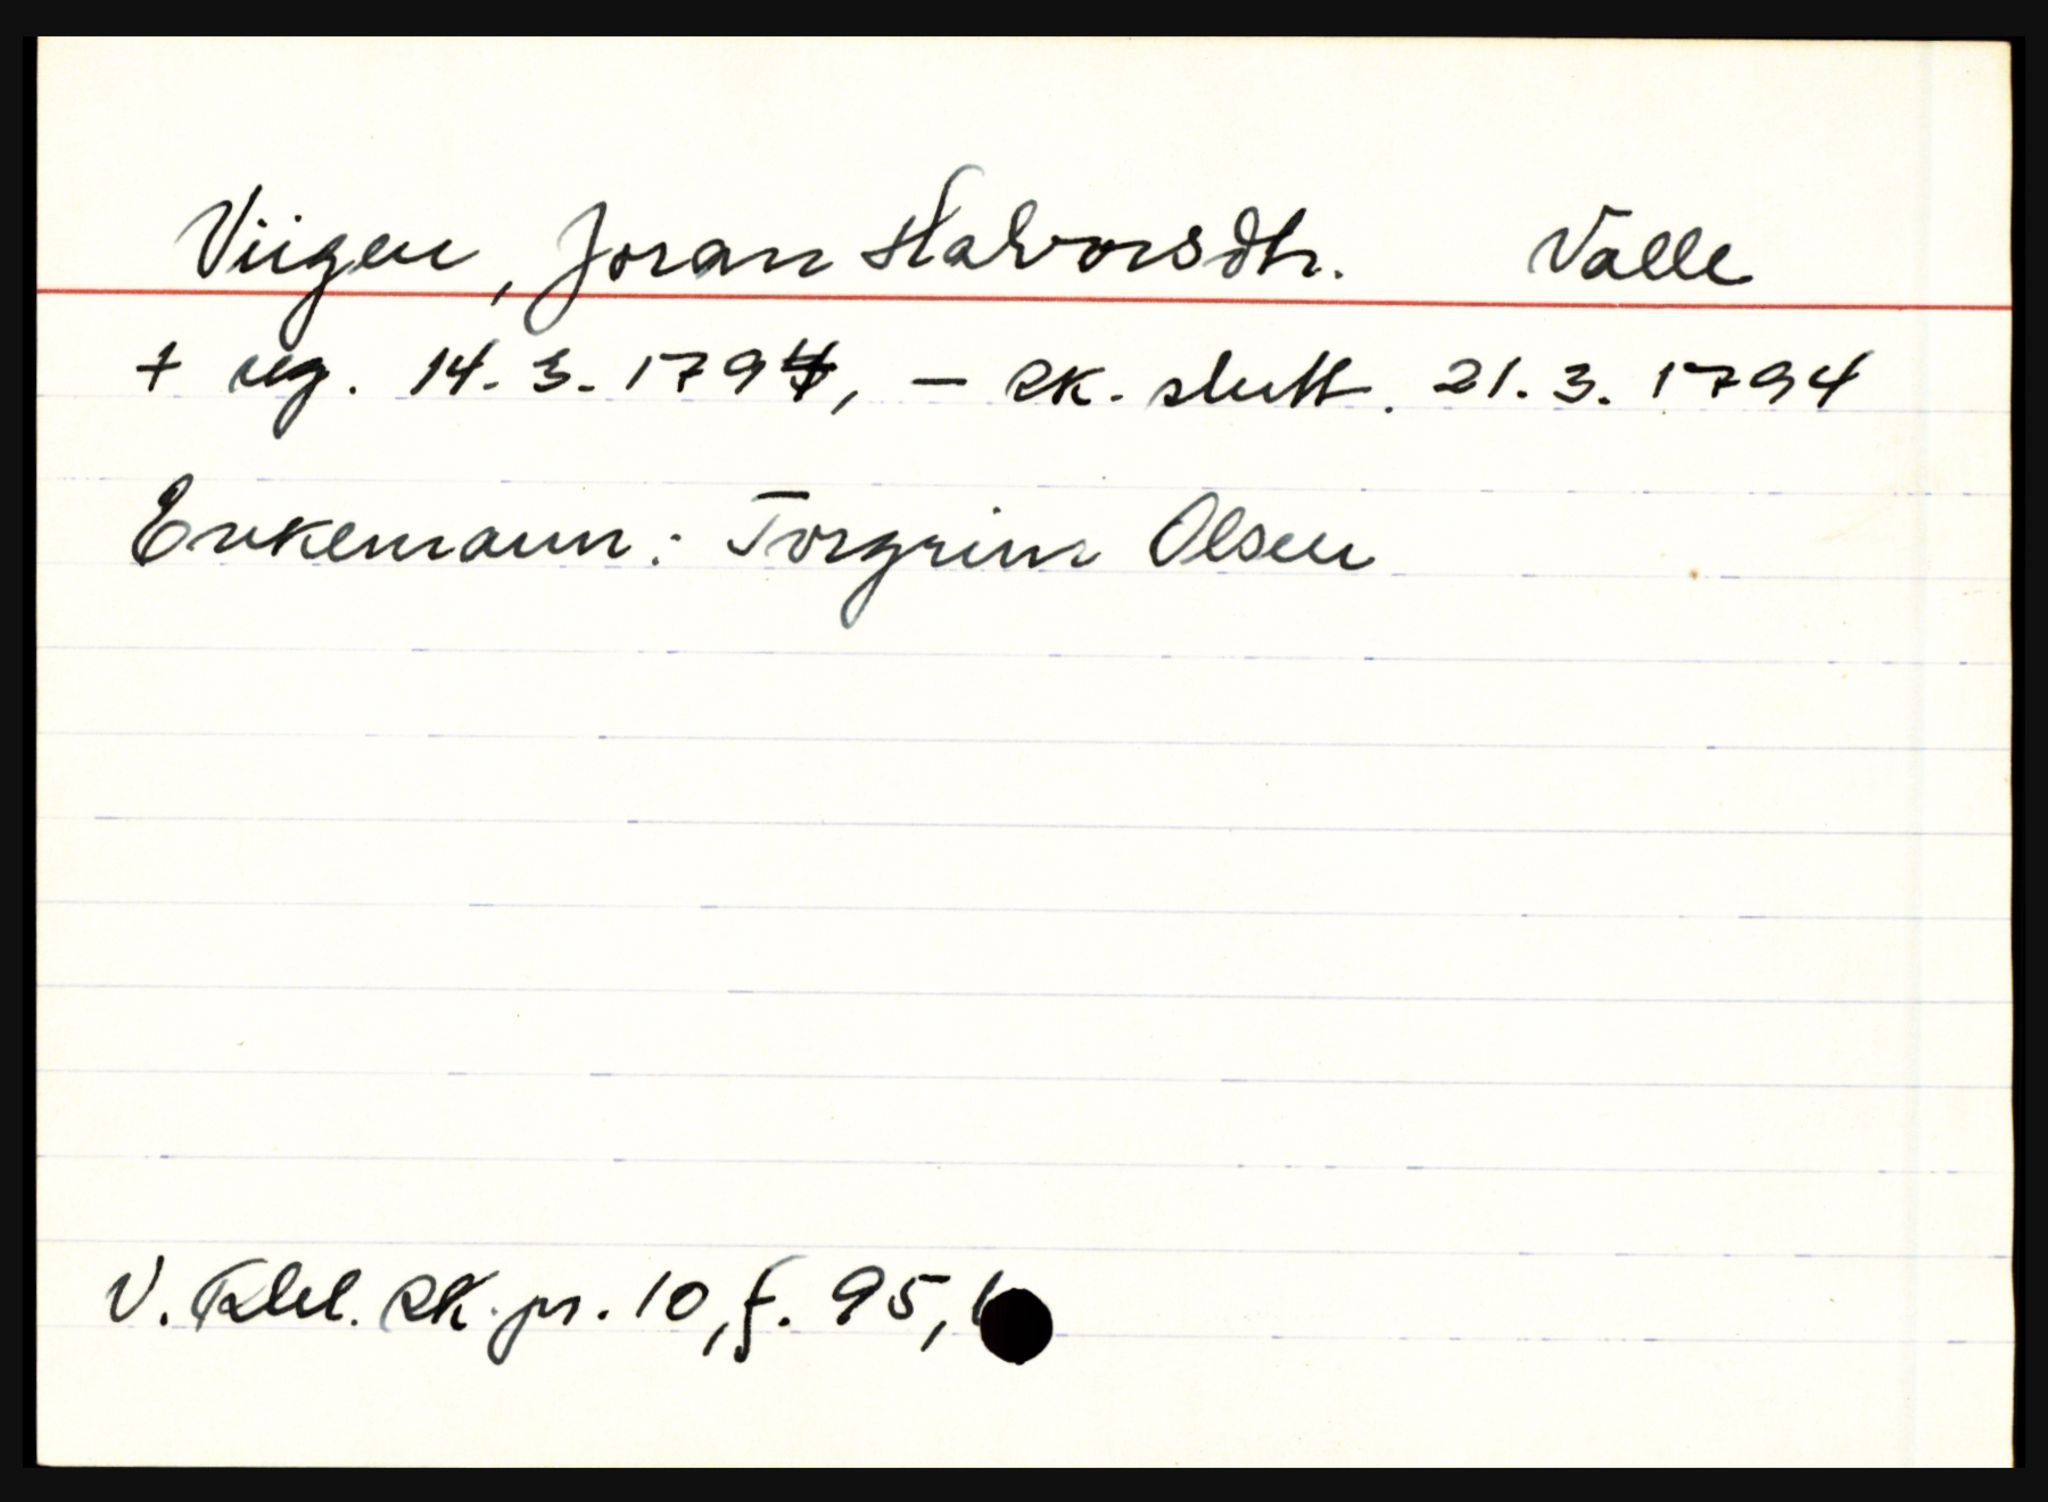 Viigen, Joran Halvorsdtr. Valle
+ reg. 14.3.1794, – sk. slutt. 21.3.1794
Enkemann: Torgrim Olsen
V. Rbl. sk. pr. 10, f. 95, b